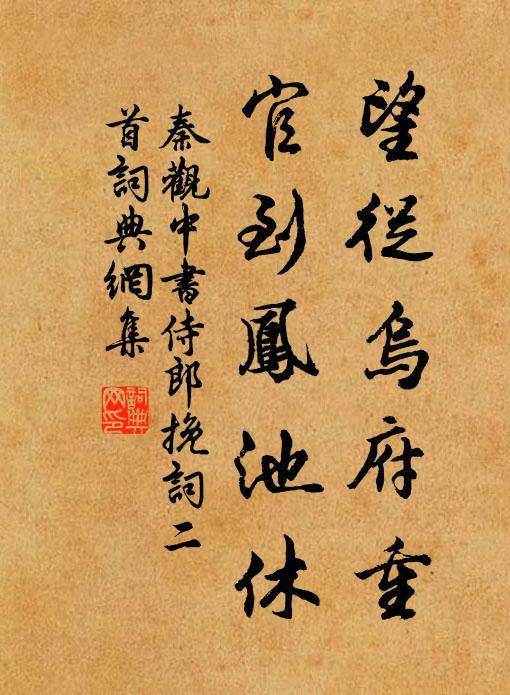 望從烏府重
官到鳳池休
秦觀中書侍郎挽詞二
首詞典網集
詞典
网印